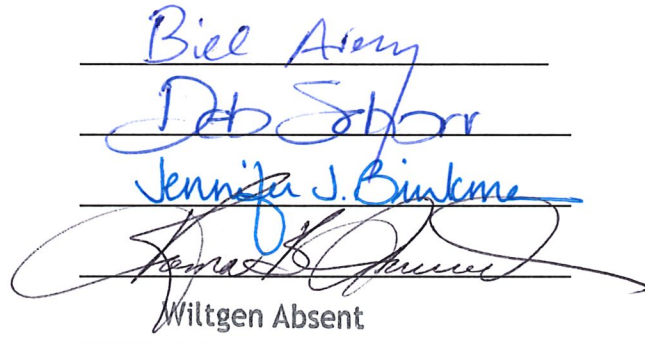 Bill Avery
Deb Schorr
Jennifer J. Brinkman
Wiltgen Absent